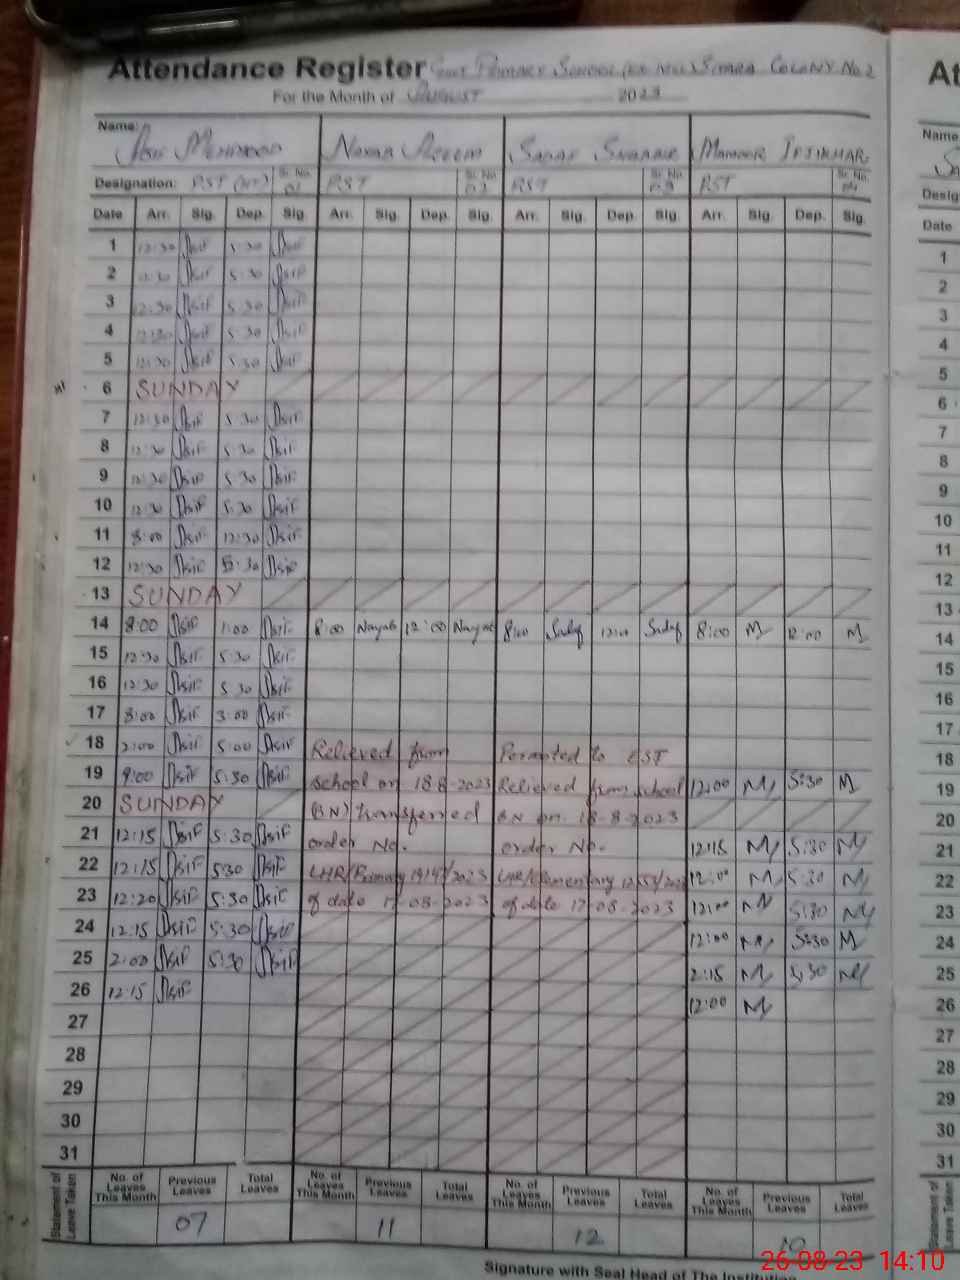 Attendance Register Govt Primary School Sitara Colony No 2
At
For the Month of August 2023
Name: Asif Mehmood Nayab Sadaf Iftikhar
Name
Designation: PST Sr. No. 01 PST Sr. No. PST Sr. No. PST Sr. No.
Desig
Date Arr. Sig. Dep. Sig. Arr. Sig. Dep. Sig. Arr. Sig. Dep. Sig. Arr. Sig. Dep. Sig.
Date
1 12:30 Asif 5:30 Asif 1
2 12:30 Asif 5:30 Asif 2
3 12:30 Asif 5:30 Asif 3
4 12:30 Asif 5:30 Asif 4
5 12:30 Asif 5:30 Asif 5
6 SUNDAY 6
7 12:30 Asif 5:30 Asif 7
8 12:30 Asif 5:30 Asif 8
9 12:30 Asif 5:30 Asif 9
10 12:30 Asif 5:30 Asif 10
11 8:00 Asif 12:30 Asif 11
12 12:30 Asif 5:30 Asif 12
13 SUNDAY 13
14 8:00 Asif 1:00 Asif 8:00 Nayab 12:00 Nayab 8:00 Sadaf 12:00 Sadaf 8:00 M 12:00 M 14
15 12:30 Asif 5:30 Asif 15
16 12:30 Asif 5:30 Asif 16
17 8:00 Asif 3:00 Asif 17
18 2:00 Asif 5:00 Asif Relieved from Pormoted to EST 18
19 9:00 Asif 5:30 Asif school on 18-8-2023 Relieved from school 12:00 M 5:30 M 19
20 SUNDAY (BN) transferred BN on. 18-8-2023 20
21 12:15 Asif 5:30 Asif order No. order No. 12:15 M 5:30 M 21
22 12:15 Asif 5:30 Asif LHR/Primary /2023 LHR/Elementary 12:00 M 5:30 M 22
23 12:20 Asif 5:30 Asif of date 17-08-2023 of date 17-08-2023 12:00 M 5:30 M 23
24 12:15 Asif 5:30 Asif 12:00 M 5:30 M 24
25 2:00 Asif 5:30 Asif 2:15 M 5:30 M 25
26 12:15 Asif 12:00 M 26
27 27
28 28
29 29
30 30
31 31
Statement of Leave Taken
No. of Leaves This Month Previous Leaves Total Leaves No. of Leaves This Month Previous Leaves Total Leaves No. of Leaves This Month Previous Leaves Total Leaves No. of Leaves This Month Previous Leaves Total Leaves
Statement of Leave Taken
07 11 12 10
26-08-23 14:10
Signature with Seal Head of The Institution